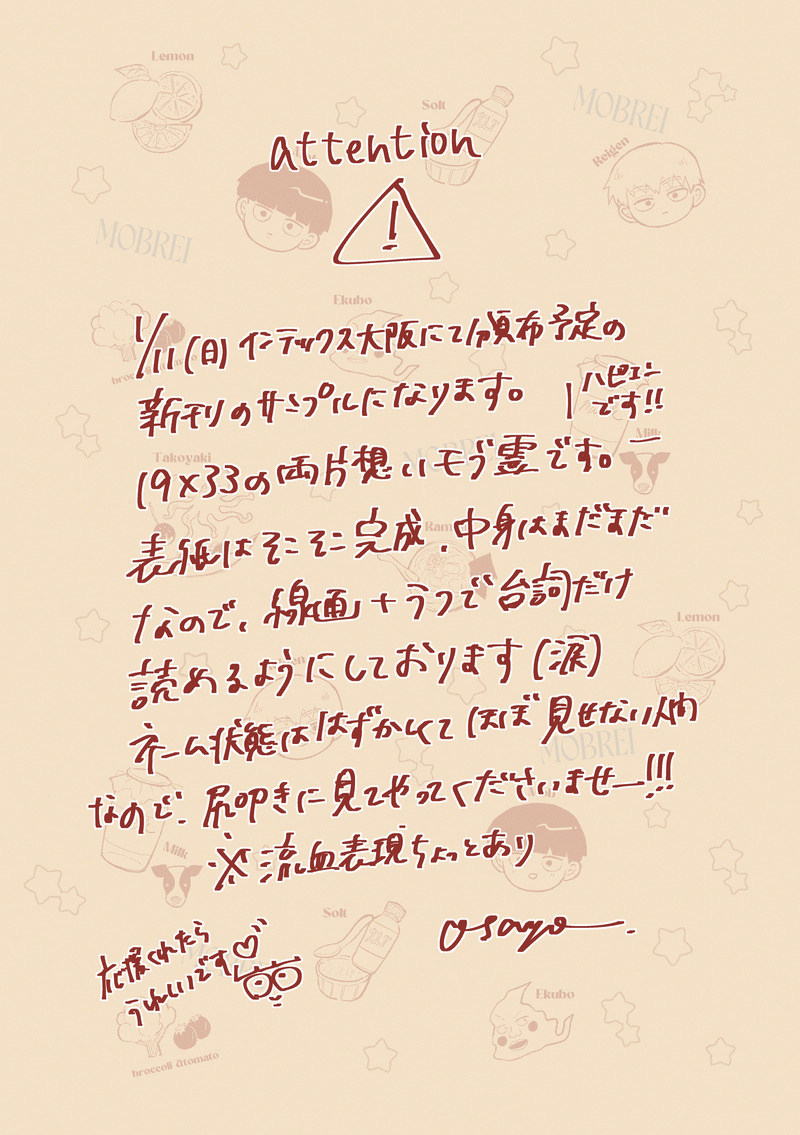 Lemon
Solt
MOBREI
Reigen
attention
!
MOBREI
Ekubo
1/11(日)インテックス大阪にて頒布予定の
新刊のサンプルになります。
ハピエン
です!!
Milk
Takoyaki
19×33の両片想いモブ霊です。
表紙はそこそこ完成、中身はまだまだ
なので、線画+うっで台詞だけ
Lemon
読めるようにしております(涙)
ネーム状態ははずかしくてほぼ見せない人間
MOBREI
なので、尻叩きに見てやってくださいませー!!!
※流血表現ちょっとあり
Milk
Solt
osayo
応援くれたら
うれしいです♡
Ekubo
broccoli &tomato